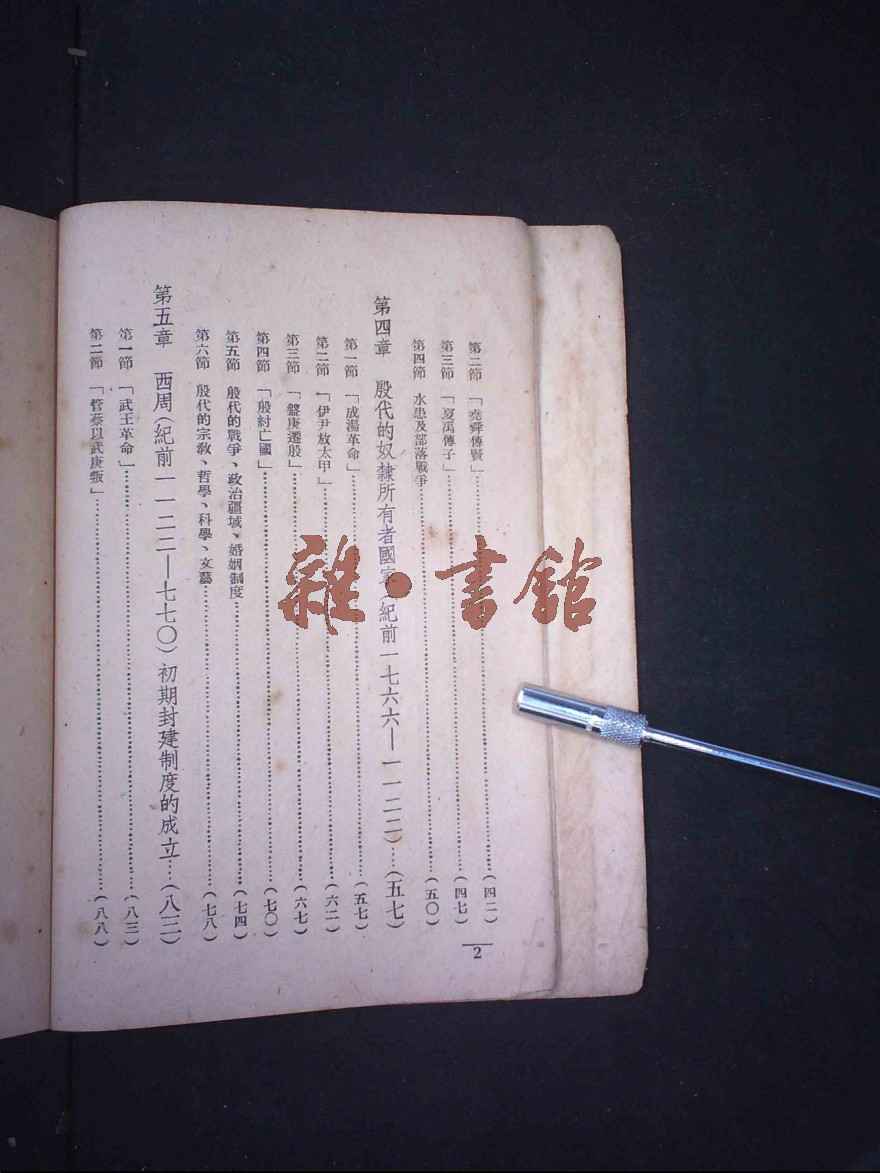 第二節 「堯舜傳賢」……(四二)
第三節 「夏禹傳子」……(四七)
第四節 水患及部落戰爭……(五〇)
第四章 殷代的奴隸所有者國家(紀前一七六六—一一二二)…(五七)
第一節 「成湯革命」……(五七)
第二節 「伊尹放太甲」……(六二)
第三節 「盤庚遷殷」……(六七)
第四節 「殷紂亡國」……(七〇)
第五節 殷代的戰爭、政治疆域、婚姻制度……(七四)
第六節 殷代的宗敎、哲學、科學、文藝……(七八)
第五章 西周(紀前一一二二—七七〇)初期封建制度的成立…(八三)
第一節 「武王革命」……(八三)
第二節 「管蔡以武庚叛」……(八八)
2
雜·書館